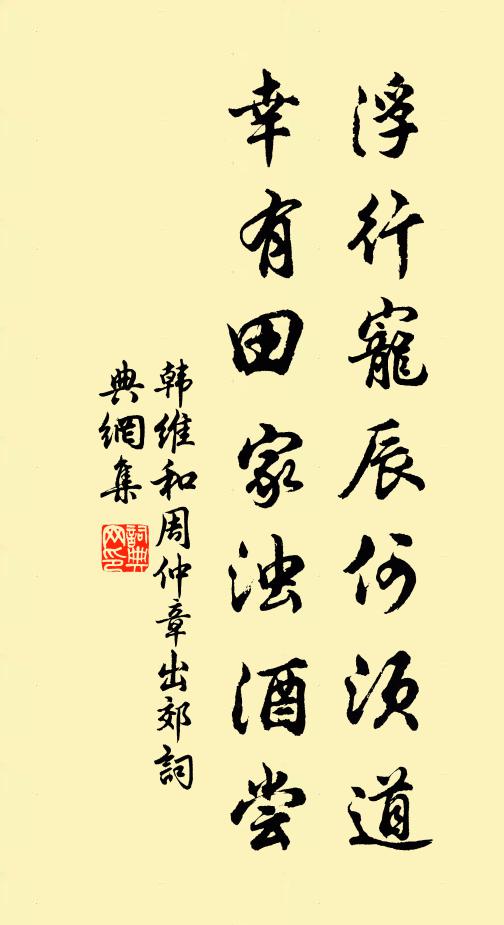 浮行寵辰何須道
幸有田家浊酒尝
韩维和周仲章出郊詞
典網集
詞典
网印